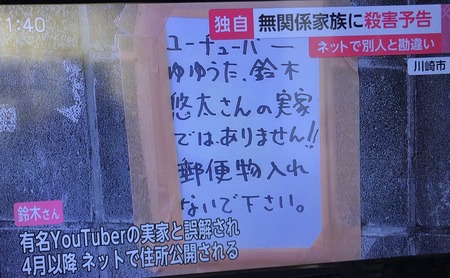 1:40
独自
無関係家族に殺害予告
ネットで別人と勘違い
川崎市
ユーチューバー
ゆゆうた、鈴木
悠太さんの実家
ではありません!!
郵便物入れ
ないで下さい。
鈴木さん
有名YouTuberの実家と誤解され
4月以降 ネットで住所公開される